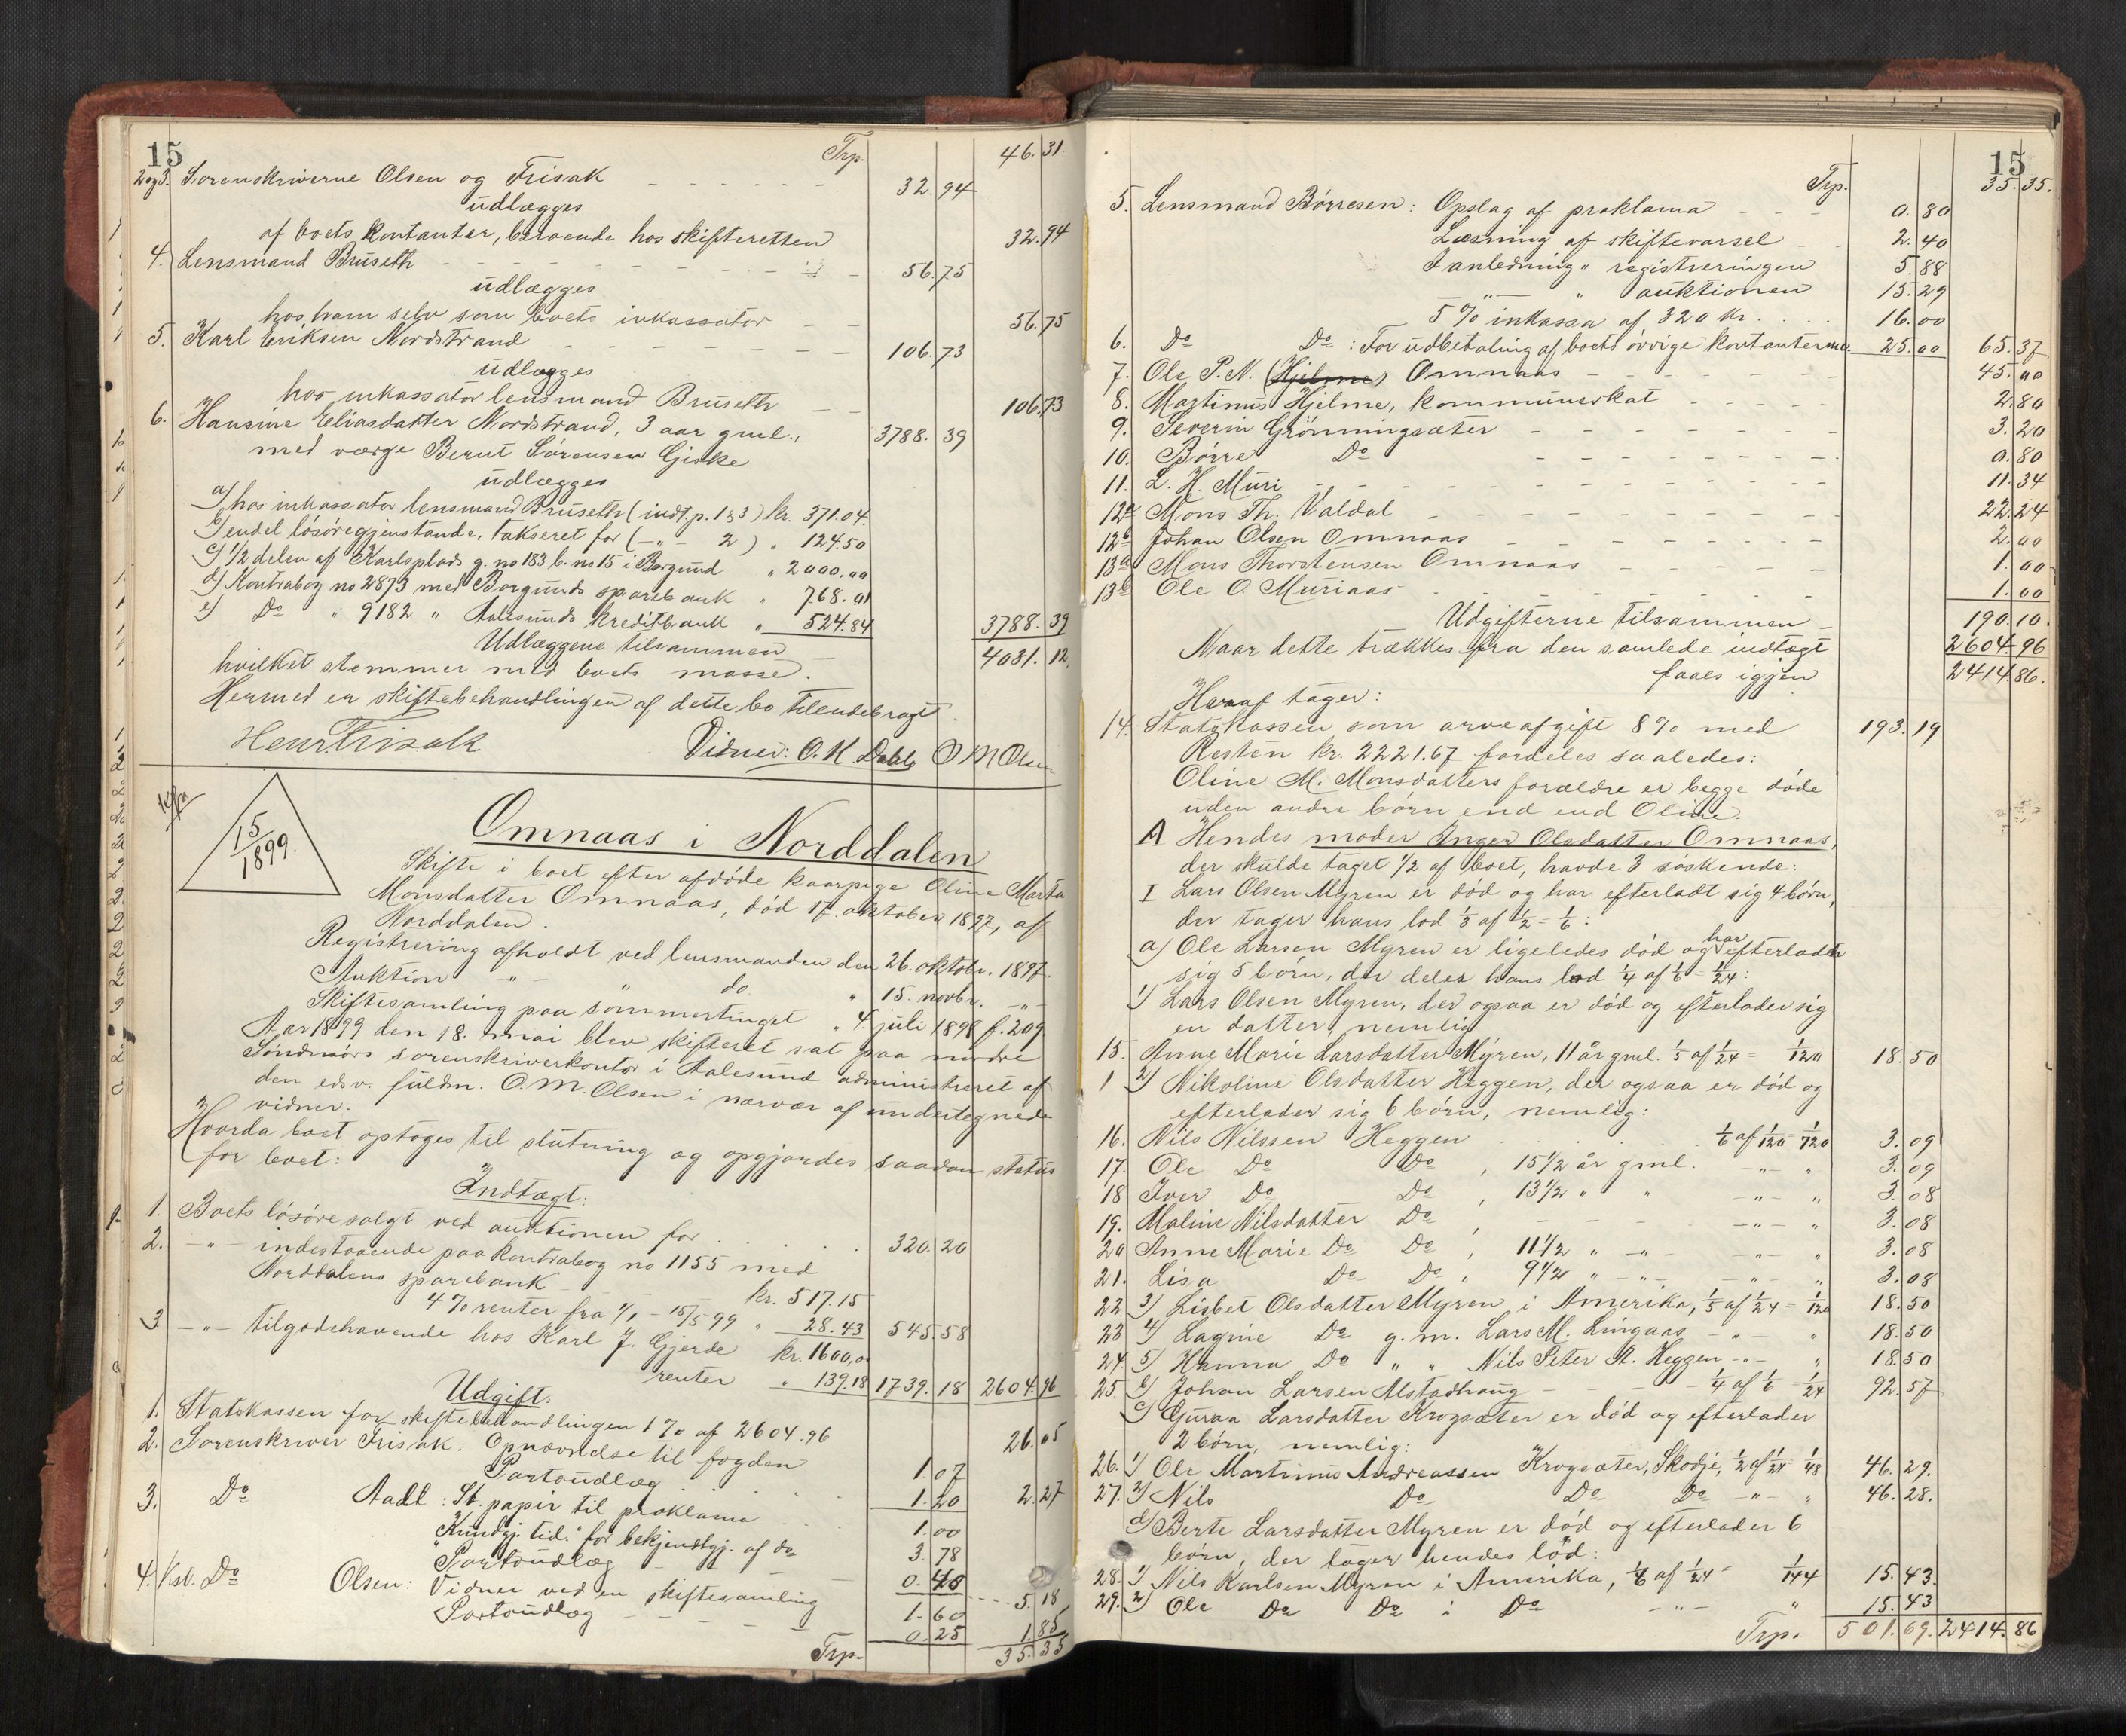 15
Trp. 46.31
2og3. Sorenskriverne Olsen og Frisak 32.94
udlægges
af boets kontanter, beroende hos skifteretten 32.94
4. Lensmand Bruseth 56.75
udlægges
hos ham selv som boets inkassator 56.75
5. Karl Eriksen Nordstrand 106.73
udlægges
hos inkassator lensmand Bruseth 106.73
6. Hansine Eliasdatter Nordstrand, 3 aar gml., 3788.39
med værge Bernt Sørensen Giske
udlægges
a) hos inkassator lensmand Bruseth (indt. p. 1 & 3) kr. 371.04.
b) endel løsøregjenstande, takseret for ( -"- 2) " 124.50
c) 1/2 delen af Karlsplads g. no 183 b. no 15 i Borgund " 2000.00
d) Kontrabog no 2873 med Borgunds sparebank " 768.01
e) Do " 9182 " Aalesunds kreditbank " 524.84 3788.39
Udlæggene tilsammen 4031.12,
hvilket stemmer med boets masse.
Hermed er skiftebehandlingen af dette bo tilendebragt.
Henr. Frisak Vidner: O. K. Dahls O M Olsen
15/1899.
Omnaas i Norddalen
Skifte i boet efter afdøde kaarpige Oline Marta
Monsdatter Omnaas, død 17. oktober 1897, af
Norddalen.
Registrering afholdt ved lensmanden den 26. oktobr. 1897
Auktion -"- " do " 15. novbr. -"-
Skiftesamling paa sommertinget " 4. juli 1898 f. 209
Aar 1899 den 18. mai blev skifteret sat paa nordre
Søndmørs sorenskriverkontor i Aalesund administreret af
den edsv. fuldm. O. M. Olsen i nærvær af undertegnede
vidner.
Hvorda boet optoges til slutning og opgjordes saadan status
for boet:
Indtægt:
1. Boets løsøre solgt ved auktionen for 320.20
2. -"- indestaaende paa kontrabog no 1155 med
Norddalens sparebank kr. 517.15
4% renter fra 1/1 - 15/5 99 " 28.43 545.58
3 -"- tilgodehavende hos Karl J. Gjerde kr. 1600,00
renter " 139.18 1739.18 2604.96
Udgift:
1. Statskassen for skiftebehandlingen 1% af 2604.96 26.05
2. Sorenskriver Frisak: Opnævnelse til fogden 1.07
Portoudlæg 1.20 2.27
3. Do Aadl: St. papir til proklama 1.00
"Kundgj. tid." for bekjendtgj. af do 3.78
Portoudlæg 0.40 5.18
4. Kst. Do Olsen: Vidner ved en skiftesamling 1.60
Portoudlæg 0.25 1.85
Trp. 35.35
15
Trp. 35.35.
5. Lensmand Børresen: Opslag af proklama 0.80
Læsning af skiftevarsel 2.40
I anledning " registreringen 5.88
-"- " auktionen 15.29
5% inkassa af 320 kr. 16.00
6. Do Do: For udbetaling af boets øvrige kontanter m.v. 25.00 65.37
7. Ole P. N. (Hjelme) Omnaas 45.00
8. Martinus Hjelme, kommuneskat 2.80
9. Severin Grønningsæter 3.20
10. Børre Do 0.80
11. L. H. Muri 11.34
12a Mons Th. Valdal 22.24
12b Johan Olsen Omnaas 2.00
13a Mons Thorstensen Omnaas 1.00
13b Ole O. Muriaas 1.00
Udgifterne tilsammen 190.10.
Naar dette trækkes fra den samlede indtægt 2604.96
faaes igjen 2414.86.
Heraf tager:
14. Statskassen som arveafgift 8% med 193.19
Resten kr. 2221.67 fordeles saaledes:
Oline M. Monsdatters forældre er begge døde
uden andre børn end end Oline.
A Hendes moder Inger Olsdatter Omnaas,
der skulde taget 1/2 af boet, havde 3 søskende:
I Lars Olsen Myren er død og har efterladt sig 4 børn,
der tager hans lod 1/3 af 1/2 = 1/6:
a) Ole Larsen Myren er ligeledes død og har efterladt
sig 5 børn, der deler hans lod 1/4 af 1/6 = 1/24:
1) Lars Olsen Myren, der ogsaa er død og efterlader sig
en datter, nemlig
15. Anne Marie Larsdatter Myren, 11 år gml. 1/5 af 1/24 = 1/120 18.50
2) Nikoline Olsdatter Heggen, der ogsaa er død og
efterlader sig 6 børn, nemlig:
16. Nils Nilssen Heggen 1/6 af 1/120 = 1/720 3.09
17. Ole Do Do, 15 1/2 år gml. -"- " 3.09
18 Iver Do Do, 13 1/2 " " -"- " 3.08
19. Maline Nilsdatter Do, -"- " 3.08
20 Anne Marie Do Do, 11 1/2 " -"- -"- " 3.08
21. Lisa Do Do, 9 1/2 " -"- -"- " 3.08
22 3) Lisbet Olsdatter Myren i Amerika, 1/5 af 1/24 = 1/120 18.50
23 4) Lagine Do g. m. Lars M. Lingaas -"- " 18.50
24. 5) Hanna Do " " Nils Peter A. Heggen -"- " 18.50
25. b) Johan Larsen Alstadhaug 1/4 af 1/6 = 1/24 92.57
c) Guraa Larsdatter Krogsæter er død og efterlader
2 børn, nemlig:
26. 1) Ole Martinus Andreassen Krogsæter, Skodje, 1/2 af 1/24 = 1/48 46.29.
27. 2) Nils Do Do Do -"- " 46.28.
d) Berte Larsdatter Myren er død og efterlader 6
børn, der tager hendes lod:
28. 1) Nils Karlsen Myren i Amerika, 1/6 af 1/24 = 1/144 15.43.
29. 2) Ole Do Do i Do -"- " 15.43
Trp. 501.69. 2414.86